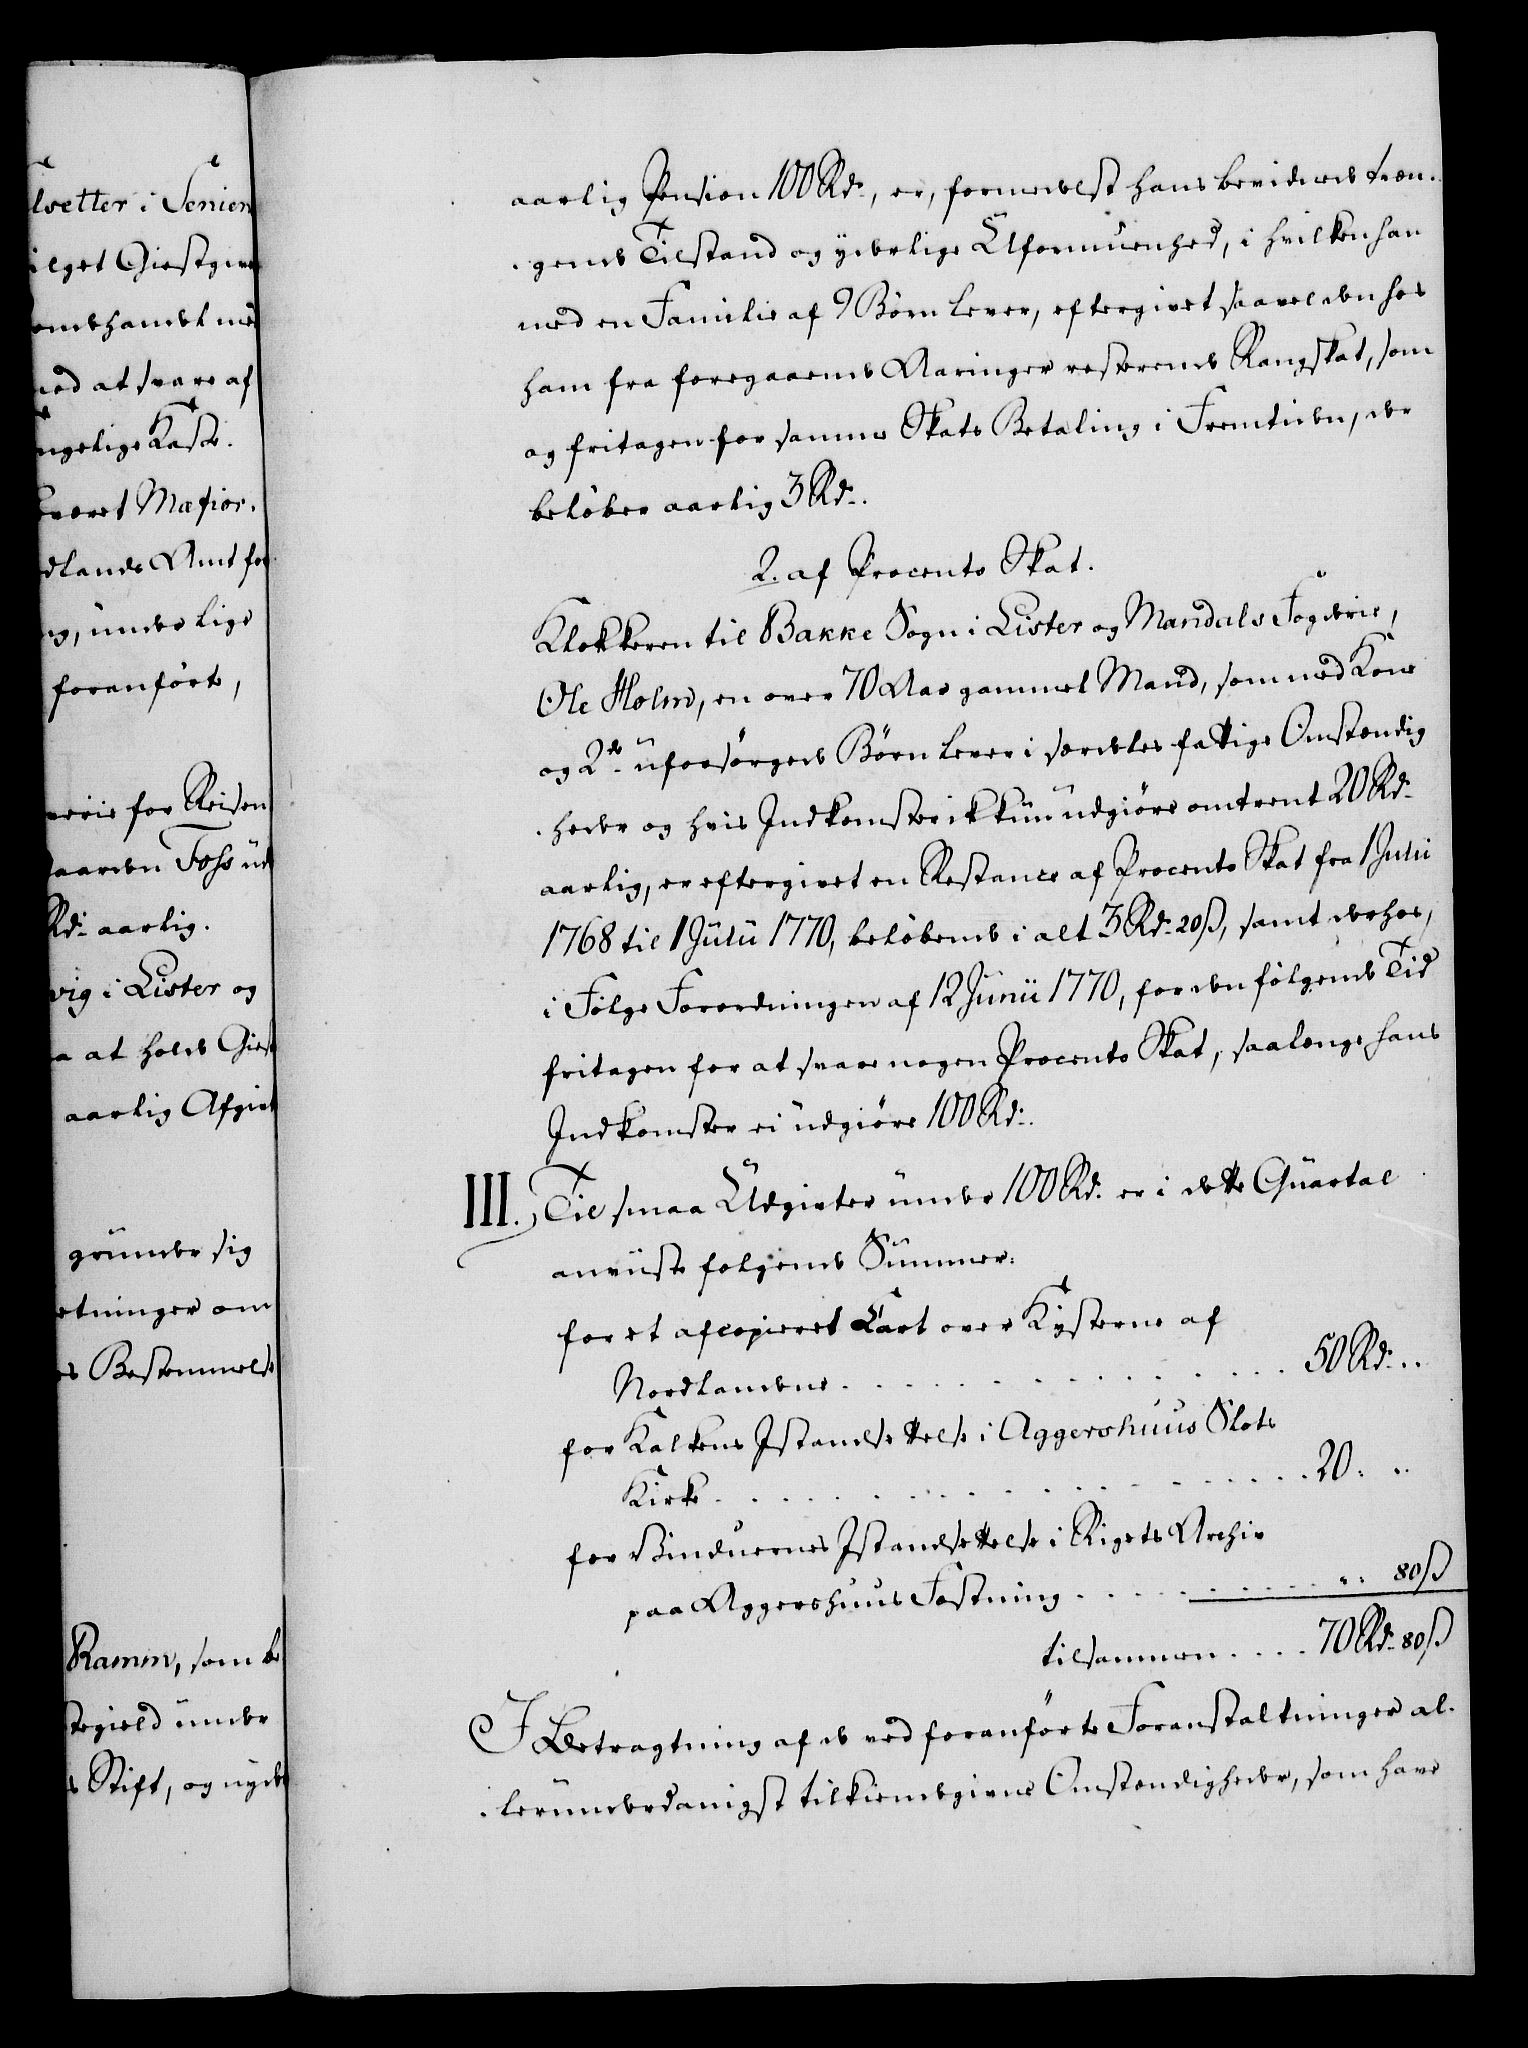 lsetter i Senien
ilget Giestgive
omehandel me
med at svare af
ngelige Kaste.
været Mæfior.
dlands Amt for
ng, under lige
foranførte,
verie for Reisen
aarden Foss ud
Rd. aarlig.
vig i Lister og
a at holde Giest
aarlig Afgivt
grunder sig
etninger om
s Bestemmelse
Ramm, som be
tegield under
s Stift, og nyde
aarlig Pension 100 Rdr, er, formedelst hans bevidnede træn-
-gende Tilstand og yderlige Uformuenhed, i hvilken han
med en Familie af 9 Børn lever, eftergivet saavel den hos
ham fra foregaaende Aaringer resterende Rangskat, som
og fritagen for samme Skats Betaling i Fremtiden, der
beløber aarlig 3 Rd.
2. af Procento Skat.
Klokkeren til Bakke Sogn i Lister og Mandals Fogderie,
Ole Holm, en over 70 Aar gammel Mand, som med Kone
og 2de uforsørgede Børn lever i særdeles fattige Omstændig
-heder og hvis Indkomster ikkun udgiøre omtrent 20 Rd.
aarlig, er eftergivet en Restance af Procento Skat fra 1 Julii
1768 til 1 Julii 1770, beløbende i alt 3 Rd. 20 ß, samt derhos,
i Følge Forordningen af 12 Junii 1770, for den følgende Tid
fritagen for at svare nogen Procento Skat, saalænge hans
Indkomster ei udgiøre 100 Rd.
III. Til smaa Udgivter under 100 Rd. er i dette Quartal
anviiste følgende Summer:
for et afcopieret Cart over Kysterne af
Nordlandene . . . . . . . . . . . . 50 Rd. ..
for Kalkens Istandsettelse i Aggershuus Slots
Kirke . . . . . . . . . . . . . . . . 20. ..
for Vinduernes Istandsettelse i Rigets Archiv
paa Aggershuus Fæstning . . . . . . . . . .. 80 ß
tilsammen . . . . 70 Rd. 80 ß
I Betragtning af de ved foranførte Foranstaltninger al-
-lerunderdanigst tilkiendegivne Omstændigheder, som have